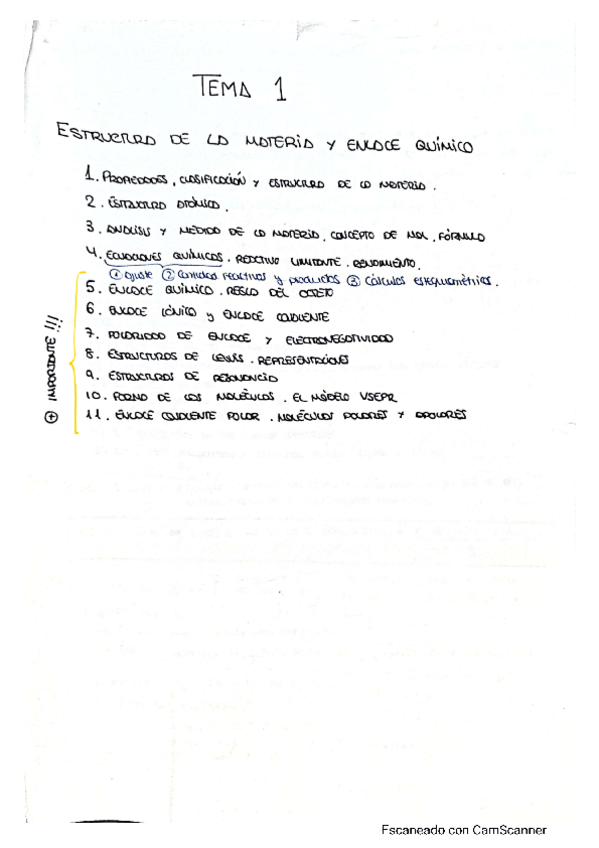 TEMA 1
ESTRUCTURA DE LA MATERIA Y ENLACE QUÍMICO
1. PROPIEDADES, CLASIFICACIÓN Y ESTRUCTURA DE LA MATERIA.
2. ESTRUCTURA ATÓMICA.
3. ANÁLISIS Y MEDIDA DE LA MATERIA. CONCEPTO DE MOL. FÓRMULA
4. ECUACIONES QUÍMICAS. REACTIVO LIMITANTE. RENDIMIENTO.
① ajuste ② Cantidad reactivos y productos ③ Cálculos estequiométricos.
5. ENLACE QUÍMICO. REGLA DEL OCTETO
6. ENLACE IÓNICO y ENLACE COVALENTE
7. POLARIDAD DE ENLACE Y ELECTRONEGATIVIDAD
8. ESTRUCTURAS DE LEWIS. REPRESENTACIONES
9. ESTRUCTURAS DE RESONANCIA
10. FORMA DE LAS MOLÉCULAS. EL MODELO VSEPR
11. ENLACE COVALENTE POLAR. MOLÉCULAS POLARES Y APOLARES
⊕ IMPORTANTE !!!
Escaneado con CamScanner